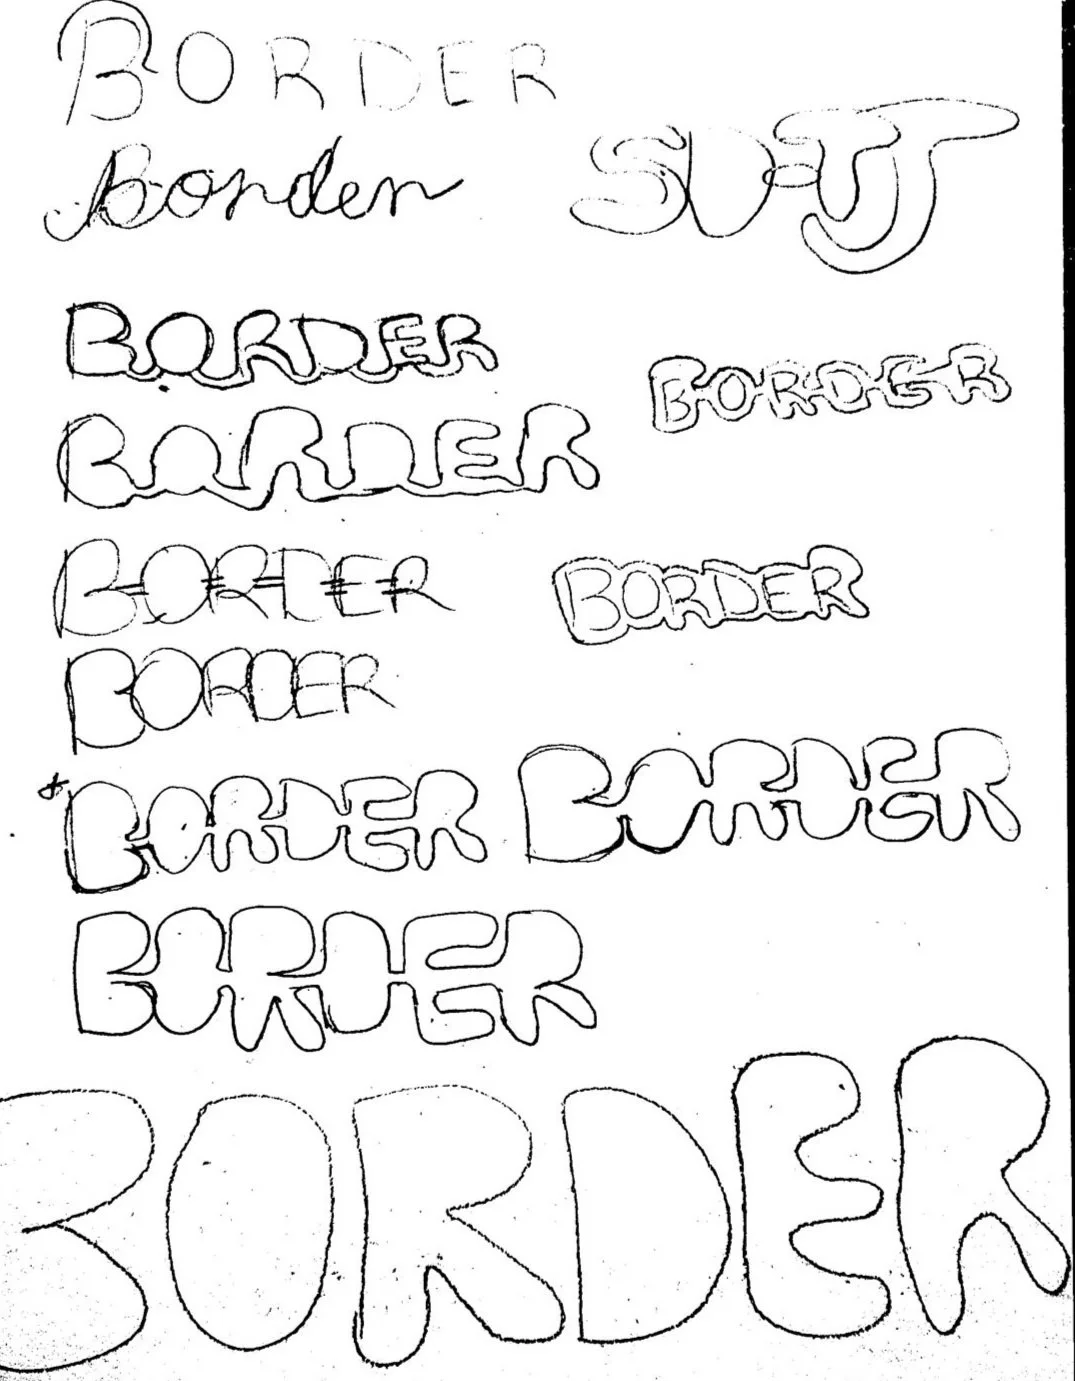 BORDER
Border
BORDER
BORDER
BORDER
BORDER
BORDER
BORDER
BORDER
BORDER
BORDER
BORDER
BORDER